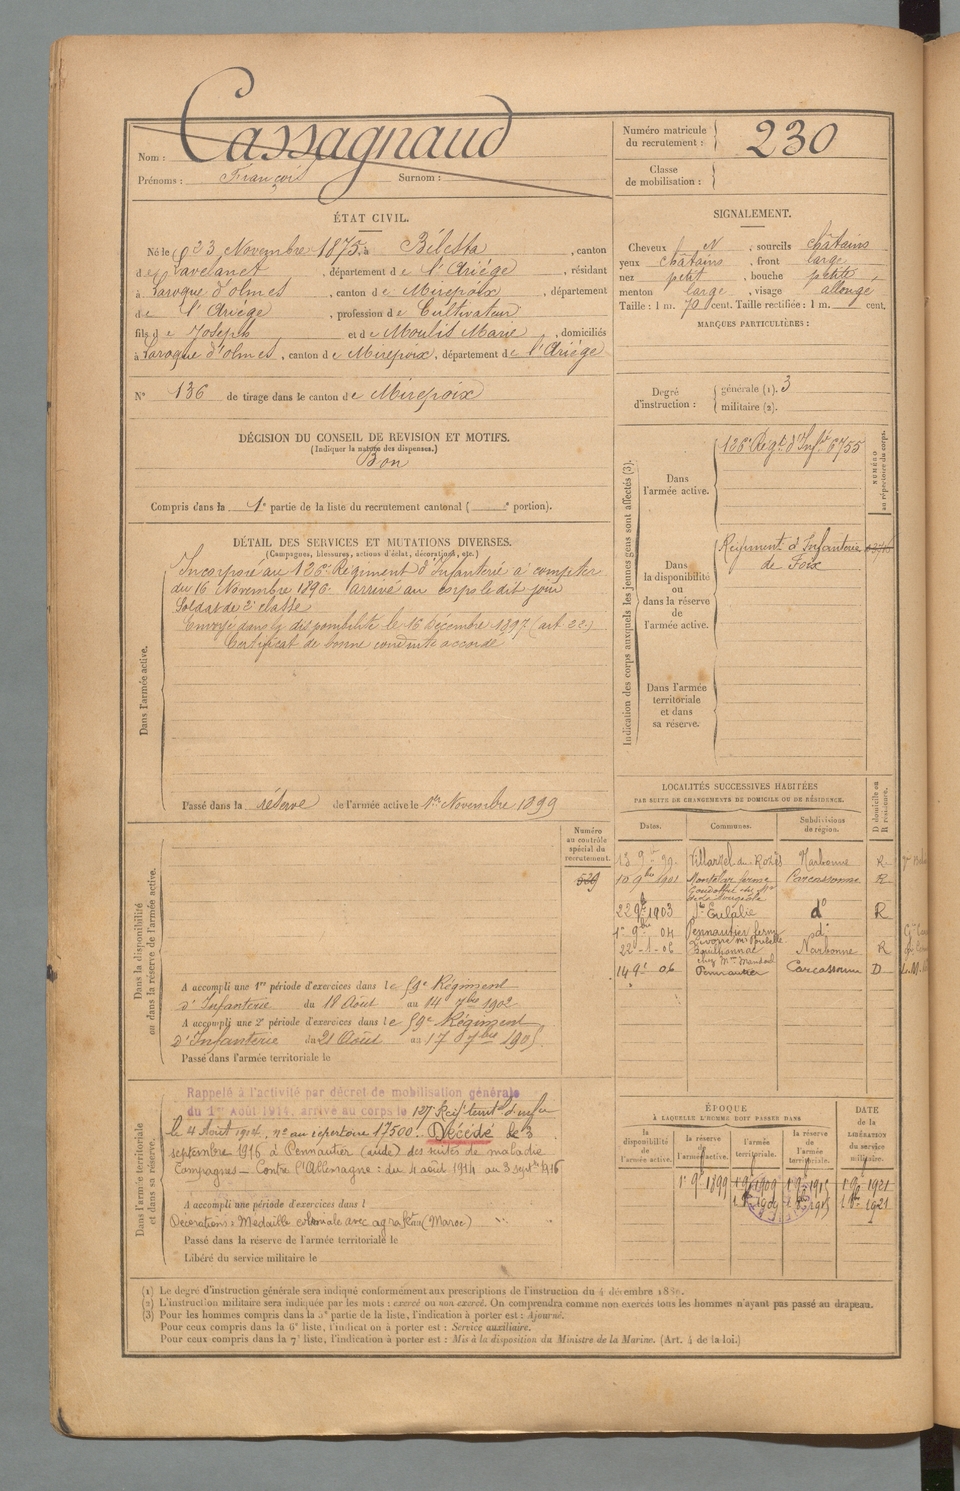 Nom : Cassagnaud
Prénoms : François Surnom :
Numéro matricule du recrutement : 230
Classe de mobilisation :
ÉTAT CIVIL.
Né le 23 Novembre 1875, à Bélesta, canton
de Lavelanet, département de l'Ariège, résidant
à Laroque d'olmes, canton de Mirepoix, département
de l'Ariège, profession de Cultivateur
fils de Joseph et de Moulis Marie, domiciliés
à Laroque d'olmes, canton de Mirepoix, département de l'Ariège
N° 136 de tirage dans le canton de Mirepoix
SIGNALEMENT.
Cheveux N, sourcils châtains
yeux châtains, front large
nez petit, bouche petite,
menton large, visage allongé
Taille : 1 m. 70 cent. Taille rectifiée : 1 m. cent.
MARQUES PARTICULIÈRES :
Degré d'instruction : générale (1). 3
militaire (2).
DÉCISION DU CONSEIL DE REVISION ET MOTIFS.
(Indiquer la nature des dispenses.)
Bon
Compris dans la 1e partie de la liste du recrutement cantonal ( e portion).
DÉTAIL DES SERVICES ET MUTATIONS DIVERSES.
(Campagnes, blessures, actions d'éclat, décorations, etc.)
Dans l'armée active.
Incorporé au 126e Régiment d'Infanterie à compter
du 16 Novembre 1896. arrivé au corps le dit jour
Soldat de 2e classe
Envoyé dans la disponibilité le 16 Décembre 1897 (art. 22)
Certificat de bonne conduite accordé
Passé dans la réserve de l'armée active le 1er Novembre 1899
Indication des corps auxquels les jeunes gens sont affectés (3).
NUMÉRO au répertoire du corps.
Dans l'armée active.
126e Régt d'Infie 6755
Dans la disponibilité ou dans la réserve de l'armée active.
Régiment d'Infanterie
de Foix
Dans l'armée territoriale et dans sa réserve.
LOCALITÉS SUCCESSIVES HABITÉES
PAR SUITE DE CHANGEMENTS DE DOMICILE OU DE RÉSIDENCE.
Dates. Communes. Subdivisions de région. D domicile ou R résidence.
Narbonne R
Carcassonne R
1903 Ste Eulalie do R
Pennautier do
22-1-06 Narbonne R
06 Pennautier Carcassonne D
Dans la disponibilité ou dans la réserve de l'armée active.
Numéro au contrôle spécial du recrutement.
A accompli une 1re période d'exercices dans le 59e Régiment
d'Infanterie du 18 Août au 14 7bre 1902
A accompli une 2e période d'exercices dans le 59e Régiment
d'Infanterie du 21 Août au 17 7bre 1905
Passé dans l'armée territoriale le
Dans l'armée territoriale et dans sa réserve.
Rappelé à l'activité par décret de mobilisation générale
du 1er Août 1914, arrivé au corps le
le 4 Août 1914, no au répertoire 17500. Décédé le 3
septembre 1916 à Pennautier (aude) des suites de maladie
Campagnes — Contre l'Allemagne : du 4 août 1914 au 3 septbre 1916
A accompli une période d'exercices dans l
Décorations : Médaille coloniale avec agrafe (Maroc)
Passé dans la réserve de l'armée territoriale le
Libéré du service militaire le
ÉPOQUE
À LAQUELLE L'HOMME DOIT PASSER DANS
DATE DE LA LIBÉRATION du service militaire.
la disponibilité de l'armée active. la réserve de l'armée active. l'armée territoriale. la réserve de l'armée territoriale.
1899 1909 1915 1921
1909 1915 1921
(1) Le degré d'instruction générale sera indiqué conformément aux prescriptions de l'instruction du 4 décembre 1886.
(2) L'instruction militaire sera indiquée par les mots : exercé ou non exercé. On comprendra comme non exercés tous les hommes n'ayant pas passé au drapeau.
(3) Pour les hommes compris dans la 5e partie de la liste, l'indication à porter est : Ajourné.
Pour ceux compris dans la 6e liste, l'indication à porter est : Service auxiliaire.
Pour ceux compris dans la 7e liste, l'indication à porter est : Mis à la disposition du Ministre de la Marine. (Art. 4 de la loi.)